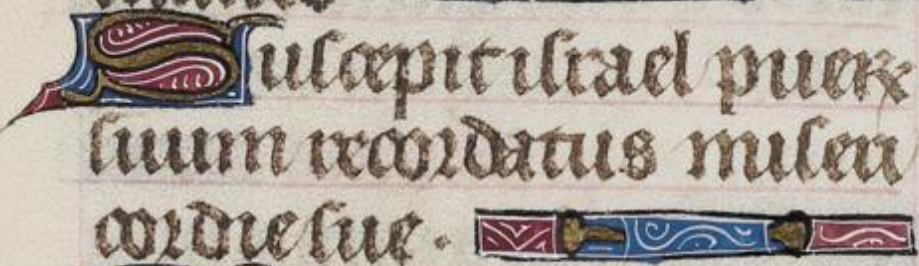 Suscepit israel puerum
suum recordatus miseri
cordie sue.